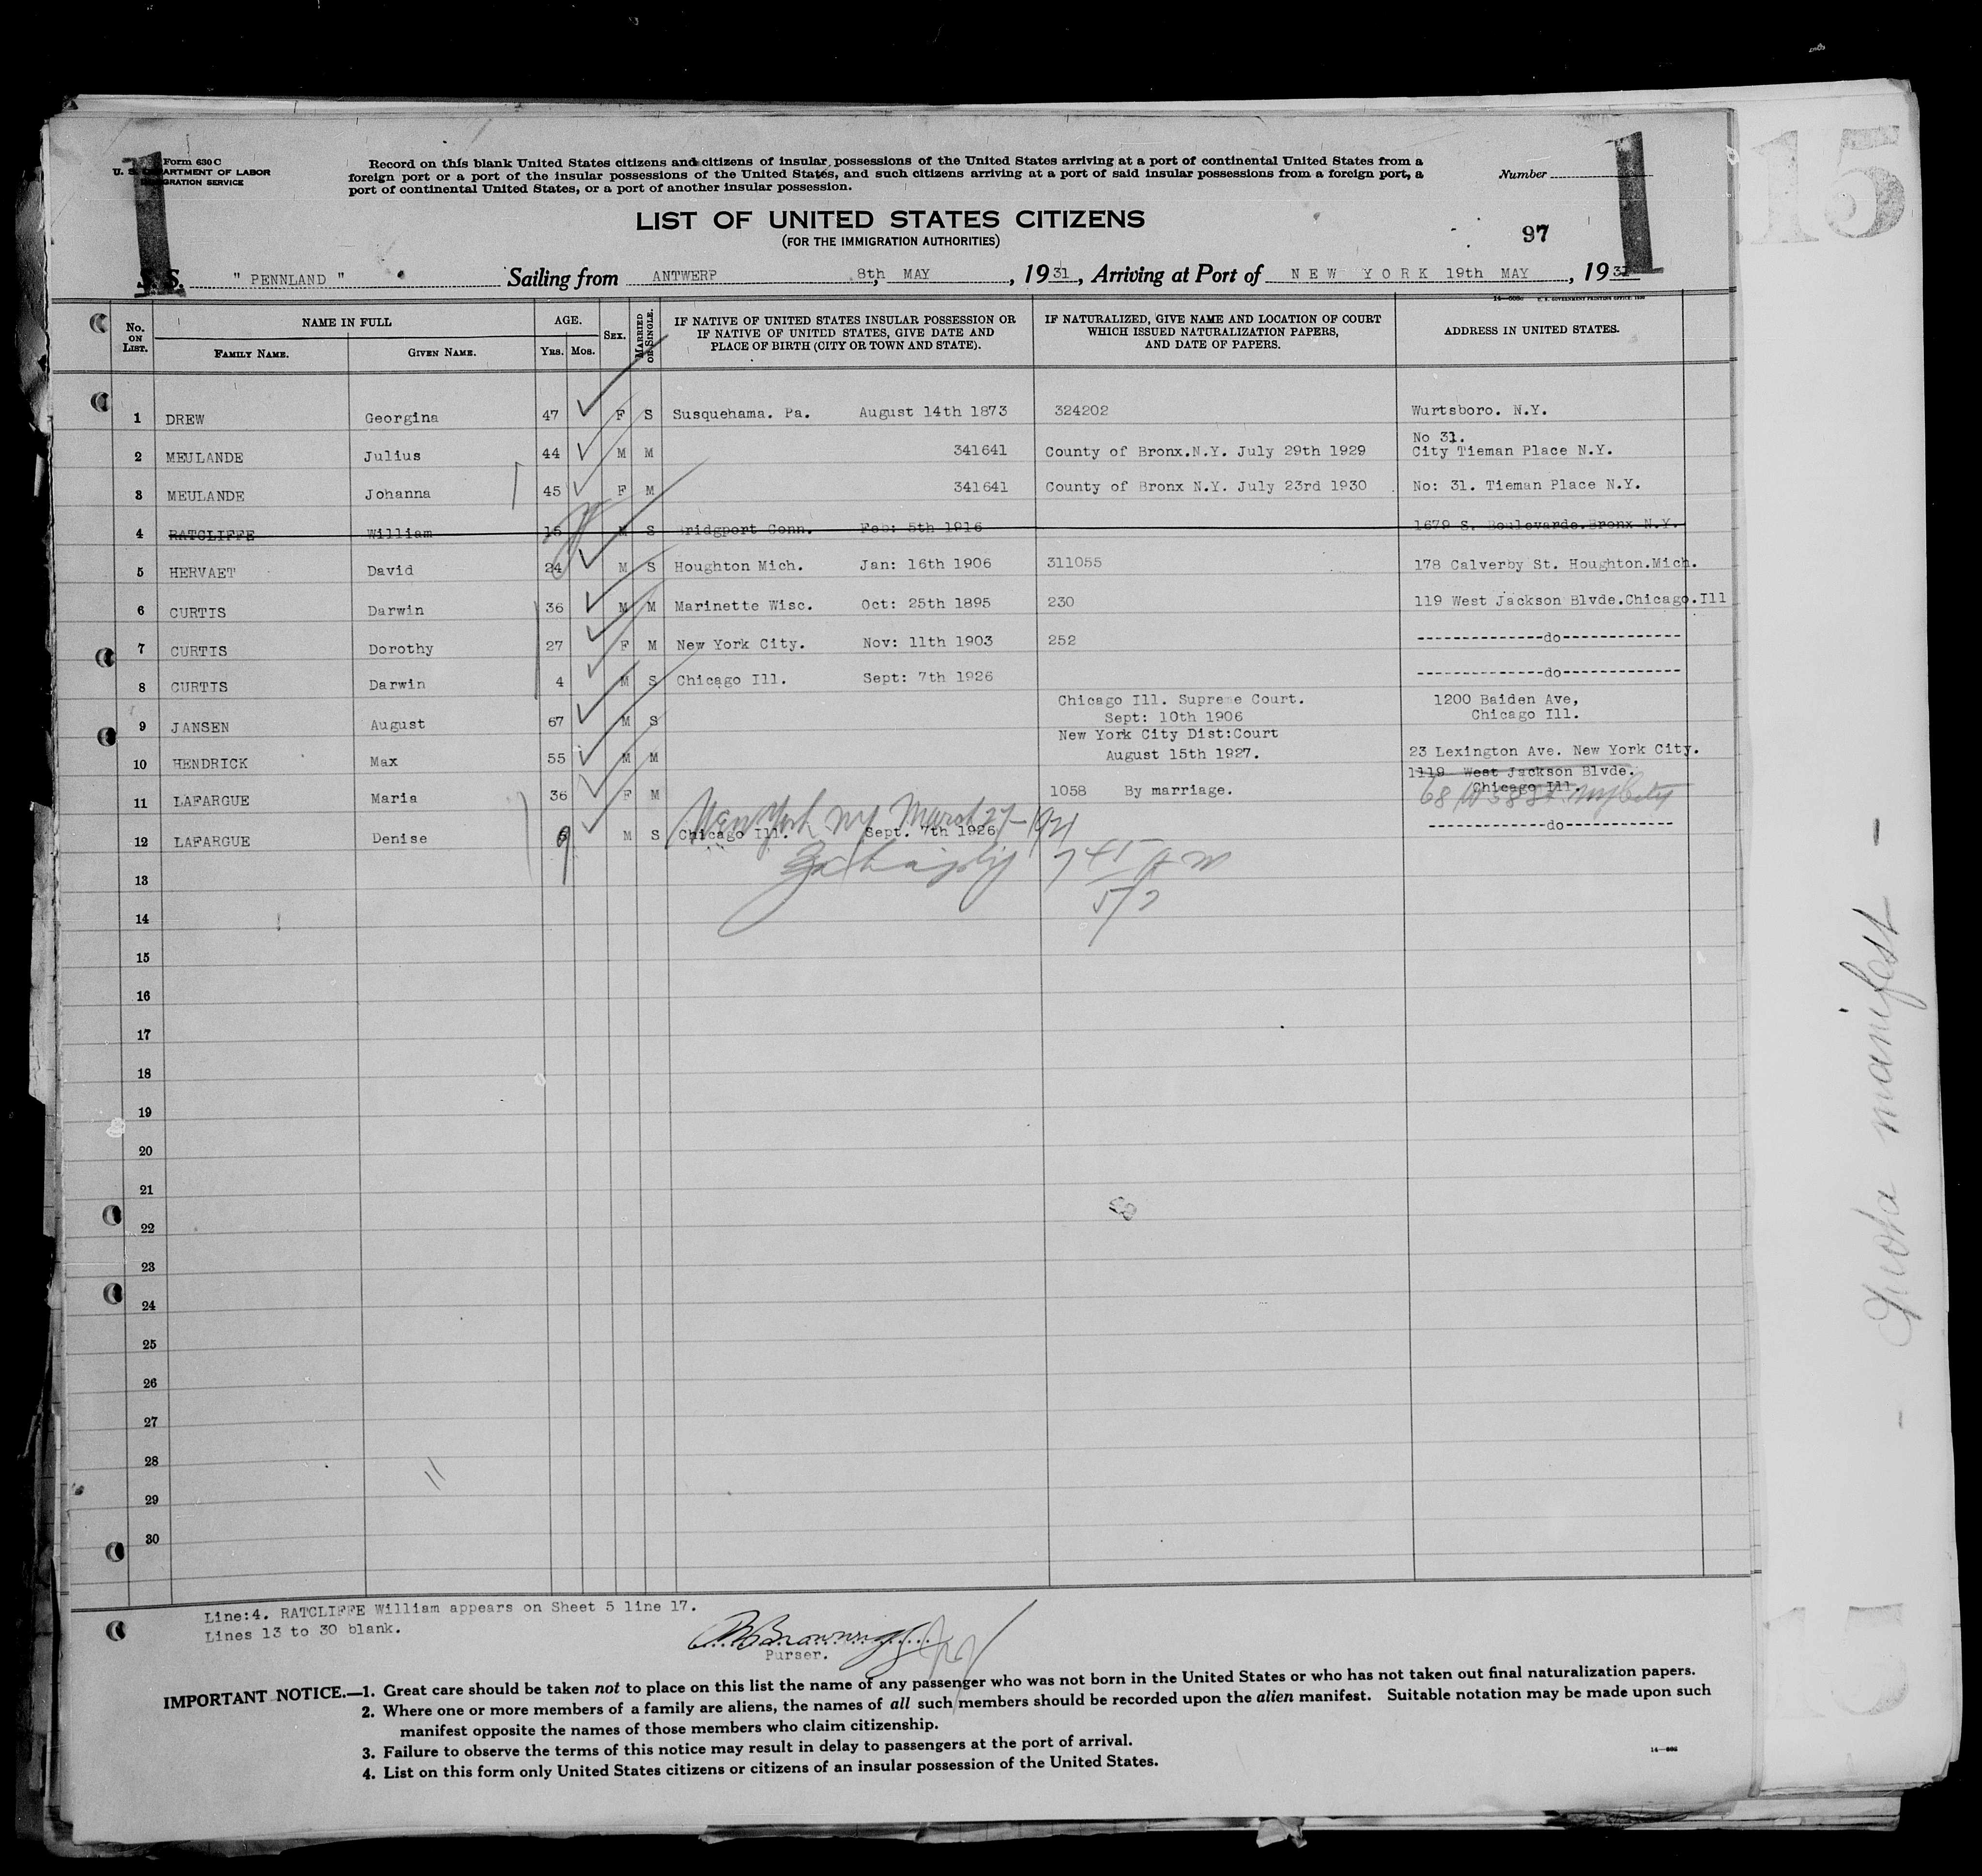 Form 630 C
U. S. DEPARTMENT OF LABOR
IMMIGRATION SERVICE
Record on this blank United States citizens and citizens of insular possessions of the United States arriving at a port of continental United States from a
foreign port or a port of the insular possessions of the United States, and such citizens arriving at a port of said insular possessions from a foreign port, a
port of continental United States, or a port of another insular possession.
Number
1 1
15
LIST OF UNITED STATES CITIZENS
(FOR THE IMMIGRATION AUTHORITIES)
97
S. S. " PENNLAND " Sailing from ANTWERP 8th MAY, 1931, Arriving at Port of NEW YORK 19th MAY, 1931
No. ON LIST. NAME IN FULL FAMILY NAME. GIVEN NAME. AGE. YRS. MOS. SEX. MARRIED OR SINGLE. IF NATIVE OF UNITED STATES INSULAR POSSESSION OR IF NATIVE OF UNITED STATES, GIVE DATE AND PLACE OF BIRTH (CITY OR TOWN AND STATE). IF NATURALIZED, GIVE NAME AND LOCATION OF COURT WHICH ISSUED NATURALIZATION PAPERS, AND DATE OF PAPERS. ADDRESS IN UNITED STATES.
1 DREW Georgina 47 F S Susquehama. Pa. August 14th 1873 324202 Wurtsboro. N.Y.
No 31.
2 MEULANDE Julius 44 M M 341641 County of Bronx.N.Y. July 29th 1929 City Tieman Place N.Y.
3 MEULANDE Johanna 45 F M 341641 County of Bronx N.Y. July 23rd 1930 No: 31. Tieman Place N.Y.
4 RATCLIFFE William 15 M S Bridgport Conn. Feb: 5th 1916 1679 S. Boulevarde.Bronx N.Y.
5 HERVAET David 24 M S Houghton Mich. Jan: 16th 1906 311055 178 Calverby St. Houghton.Mich.
6 CURTIS Darwin 36 M M Marinette Wisc. Oct: 25th 1895 230 119 West Jackson Blvde.Chicago.Ill
7 CURTIS Dorothy 27 F M New York City. Nov: 11th 1903 252 --------------do-------------
8 CURTIS Darwin 4 M S Chicago Ill. Sept: 7th 1926 --------------do-------------
Chicago Ill. Supreme Court. 1200 Baiden Ave,
9 JANSEN August 67 M S Sept: 10th 1906 Chicago Ill.
New York City Dist:Court
10 HENDRICK Max 55 M M August 15th 1927. 23 Lexington Ave. New York City.
1119 West Jackson Blvde.
11 LAFARGUE Maria 36 F M 1058 By marriage. Chicago Ill.
68 W 58 St. NY City
New York NY March 27-1921
12 LAFARGUE Denise 9 M S Chicago Ill. Sept. 7th 1926 --------------do-------------
13
14
15
16
17
18
19
20
21
22
23
24
25
26
27
28
29
30
Line:4. RATCLIFFE William appears on Sheet 5 line 17.
Lines 13 to 30 blank.
Purser.
IMPORTANT NOTICE.—1. Great care should be taken not to place on this list the name of any passenger who was not born in the United States or who has not taken out final naturalization papers.
2. Where one or more members of a family are aliens, the names of all such members should be recorded upon the alien manifest. Suitable notation may be made upon such
manifest opposite the names of those members who claim citizenship.
3. Failure to observe the terms of this notice may result in delay to passengers at the port of arrival.
4. List on this form only United States citizens or citizens of an insular possession of the United States.
- Quota manifest -